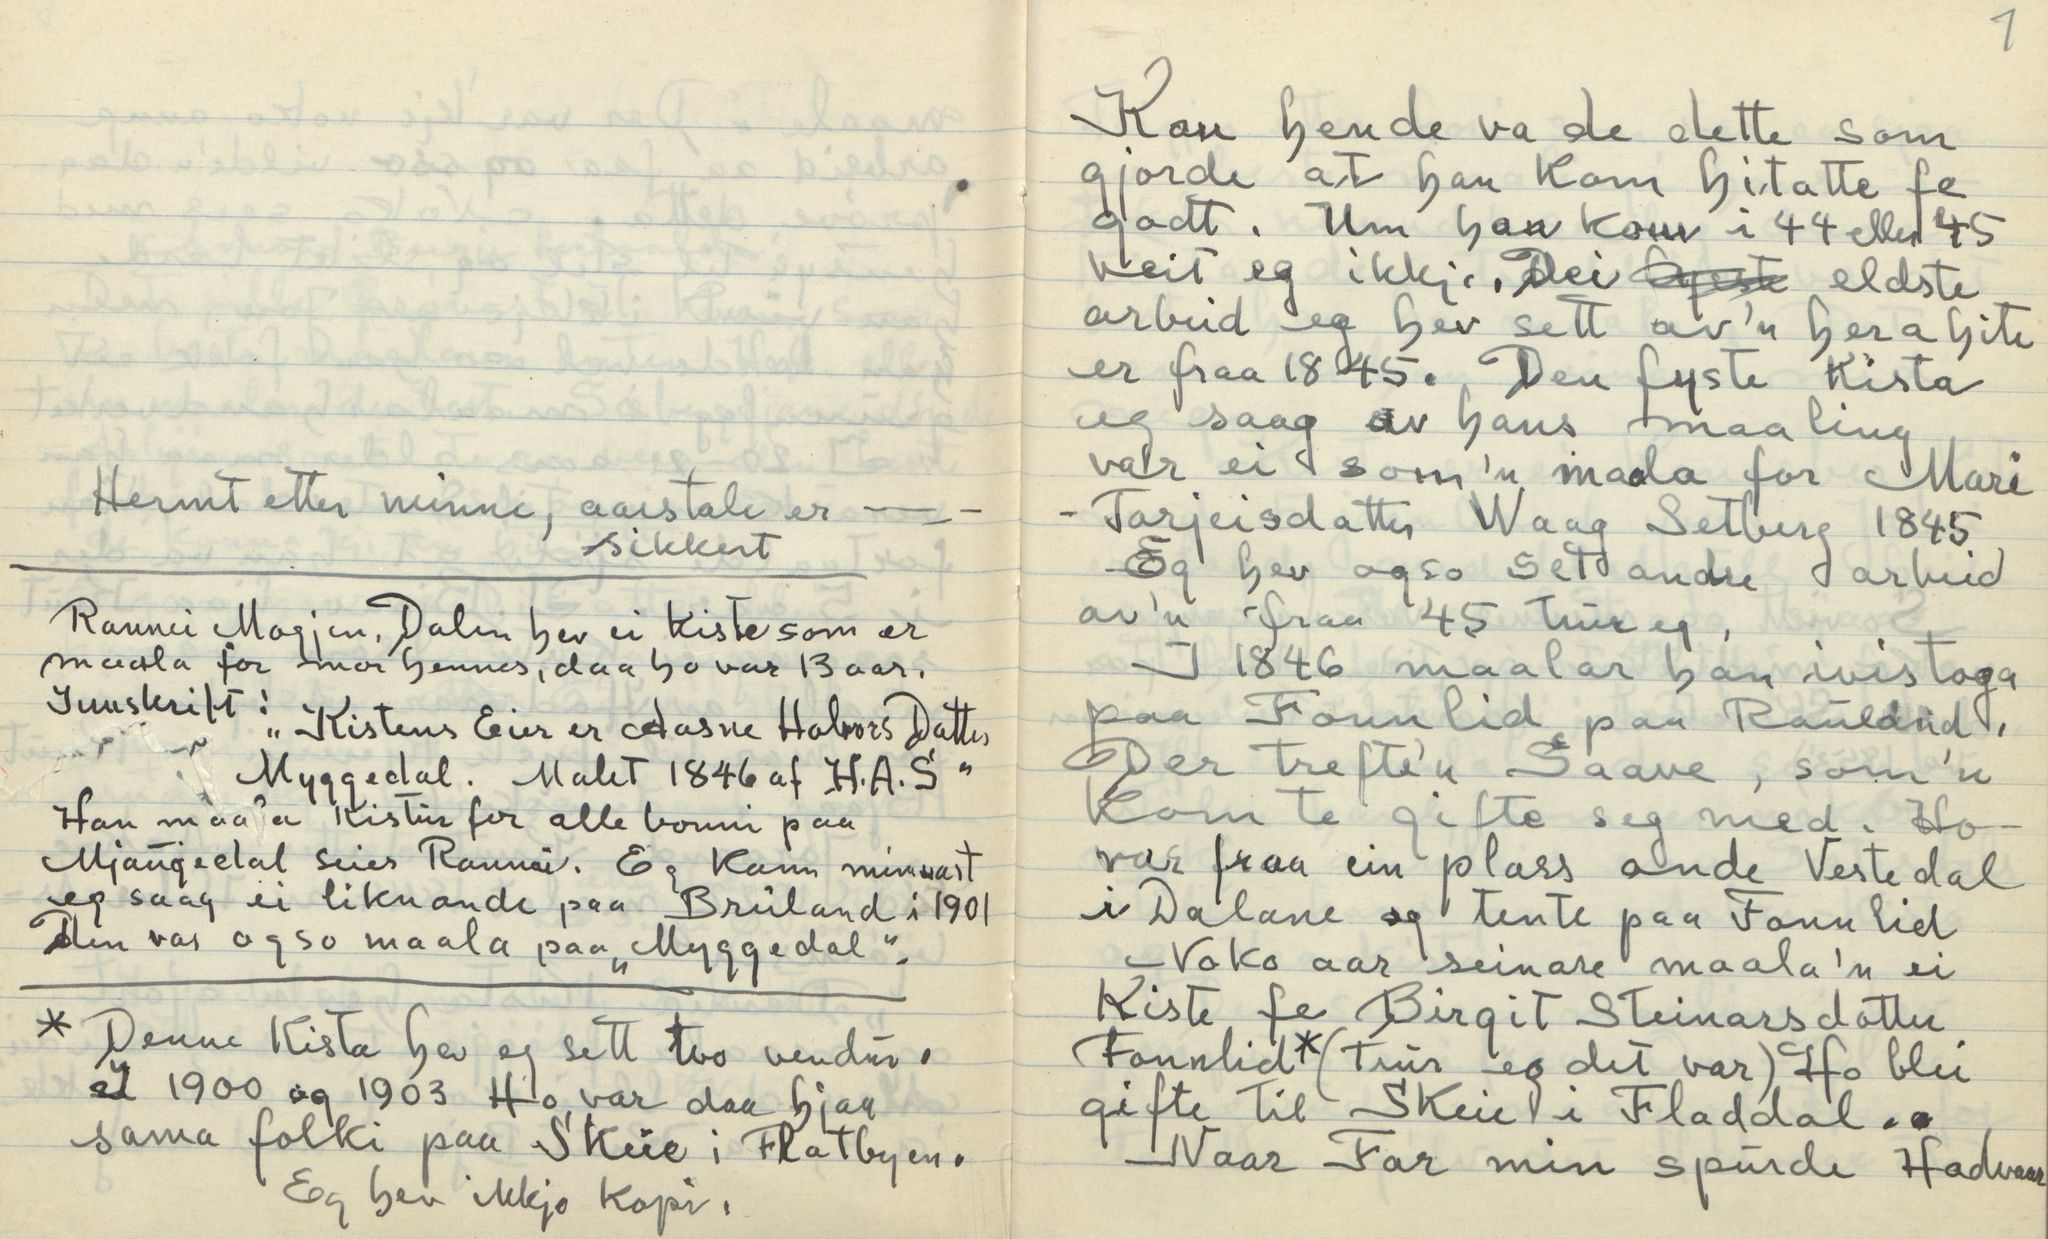 Hermt etter minne, aarstale er — - -
sikkert
Rannei Mogjen, Dalen hev ei Kiste som er
maala for mor hennes, daa ho var 13 aar.
Innskrift:
„Kistens Eier er Aasne Halvors Datter
Myggedal. Malet 1846 af H.A.S"
Han maala Kistur for alle bonni paa
Mjaugedal seier Rannei. Eg Kann minnast
eg saag ei liknande paa Bruland i 1901
Den var ogso maala paa „Myggedal".
* Denne Kista hev eg sett two vendur.
I 1900 og 1903 Ho var daa hjaa
sama folki paa Skeie i Flatbyen.
Eg hev ikkje Kopi.
1
Kan hende va de dette som
gjorde at han Kom hitatte fe
godt. Um han Kom i 44 eller 45
veit eg ikkje. Dei fyste eldste
arbeid eg hev sett av'n hera hite
er fraa 1845. Den fyste Kista
eg saag av hans maaling
va'r ei som'n maala for Mari
- Tarjeisdatter Waag Setberg 1845
Eg hev ogso sett andre arbeid
av'n fraa 45 trur eg.
I 1846 maalar han ivistoga
paa Fonnlid paa Rauland.
Der trefte'n Saave, som'n
Kom te gifte seg med. Ho
var fraa ein plass onde Vestedal
i Dalane og tente paa Fonnlid
Noko aar seinare maala'n ei
Kiste fe Birgit Steinarsdatter
Fonnlid* (trur eg det var) Ho blei
gifte til Skeie i Fladdal.
Naar Far min spurde Hadvaar